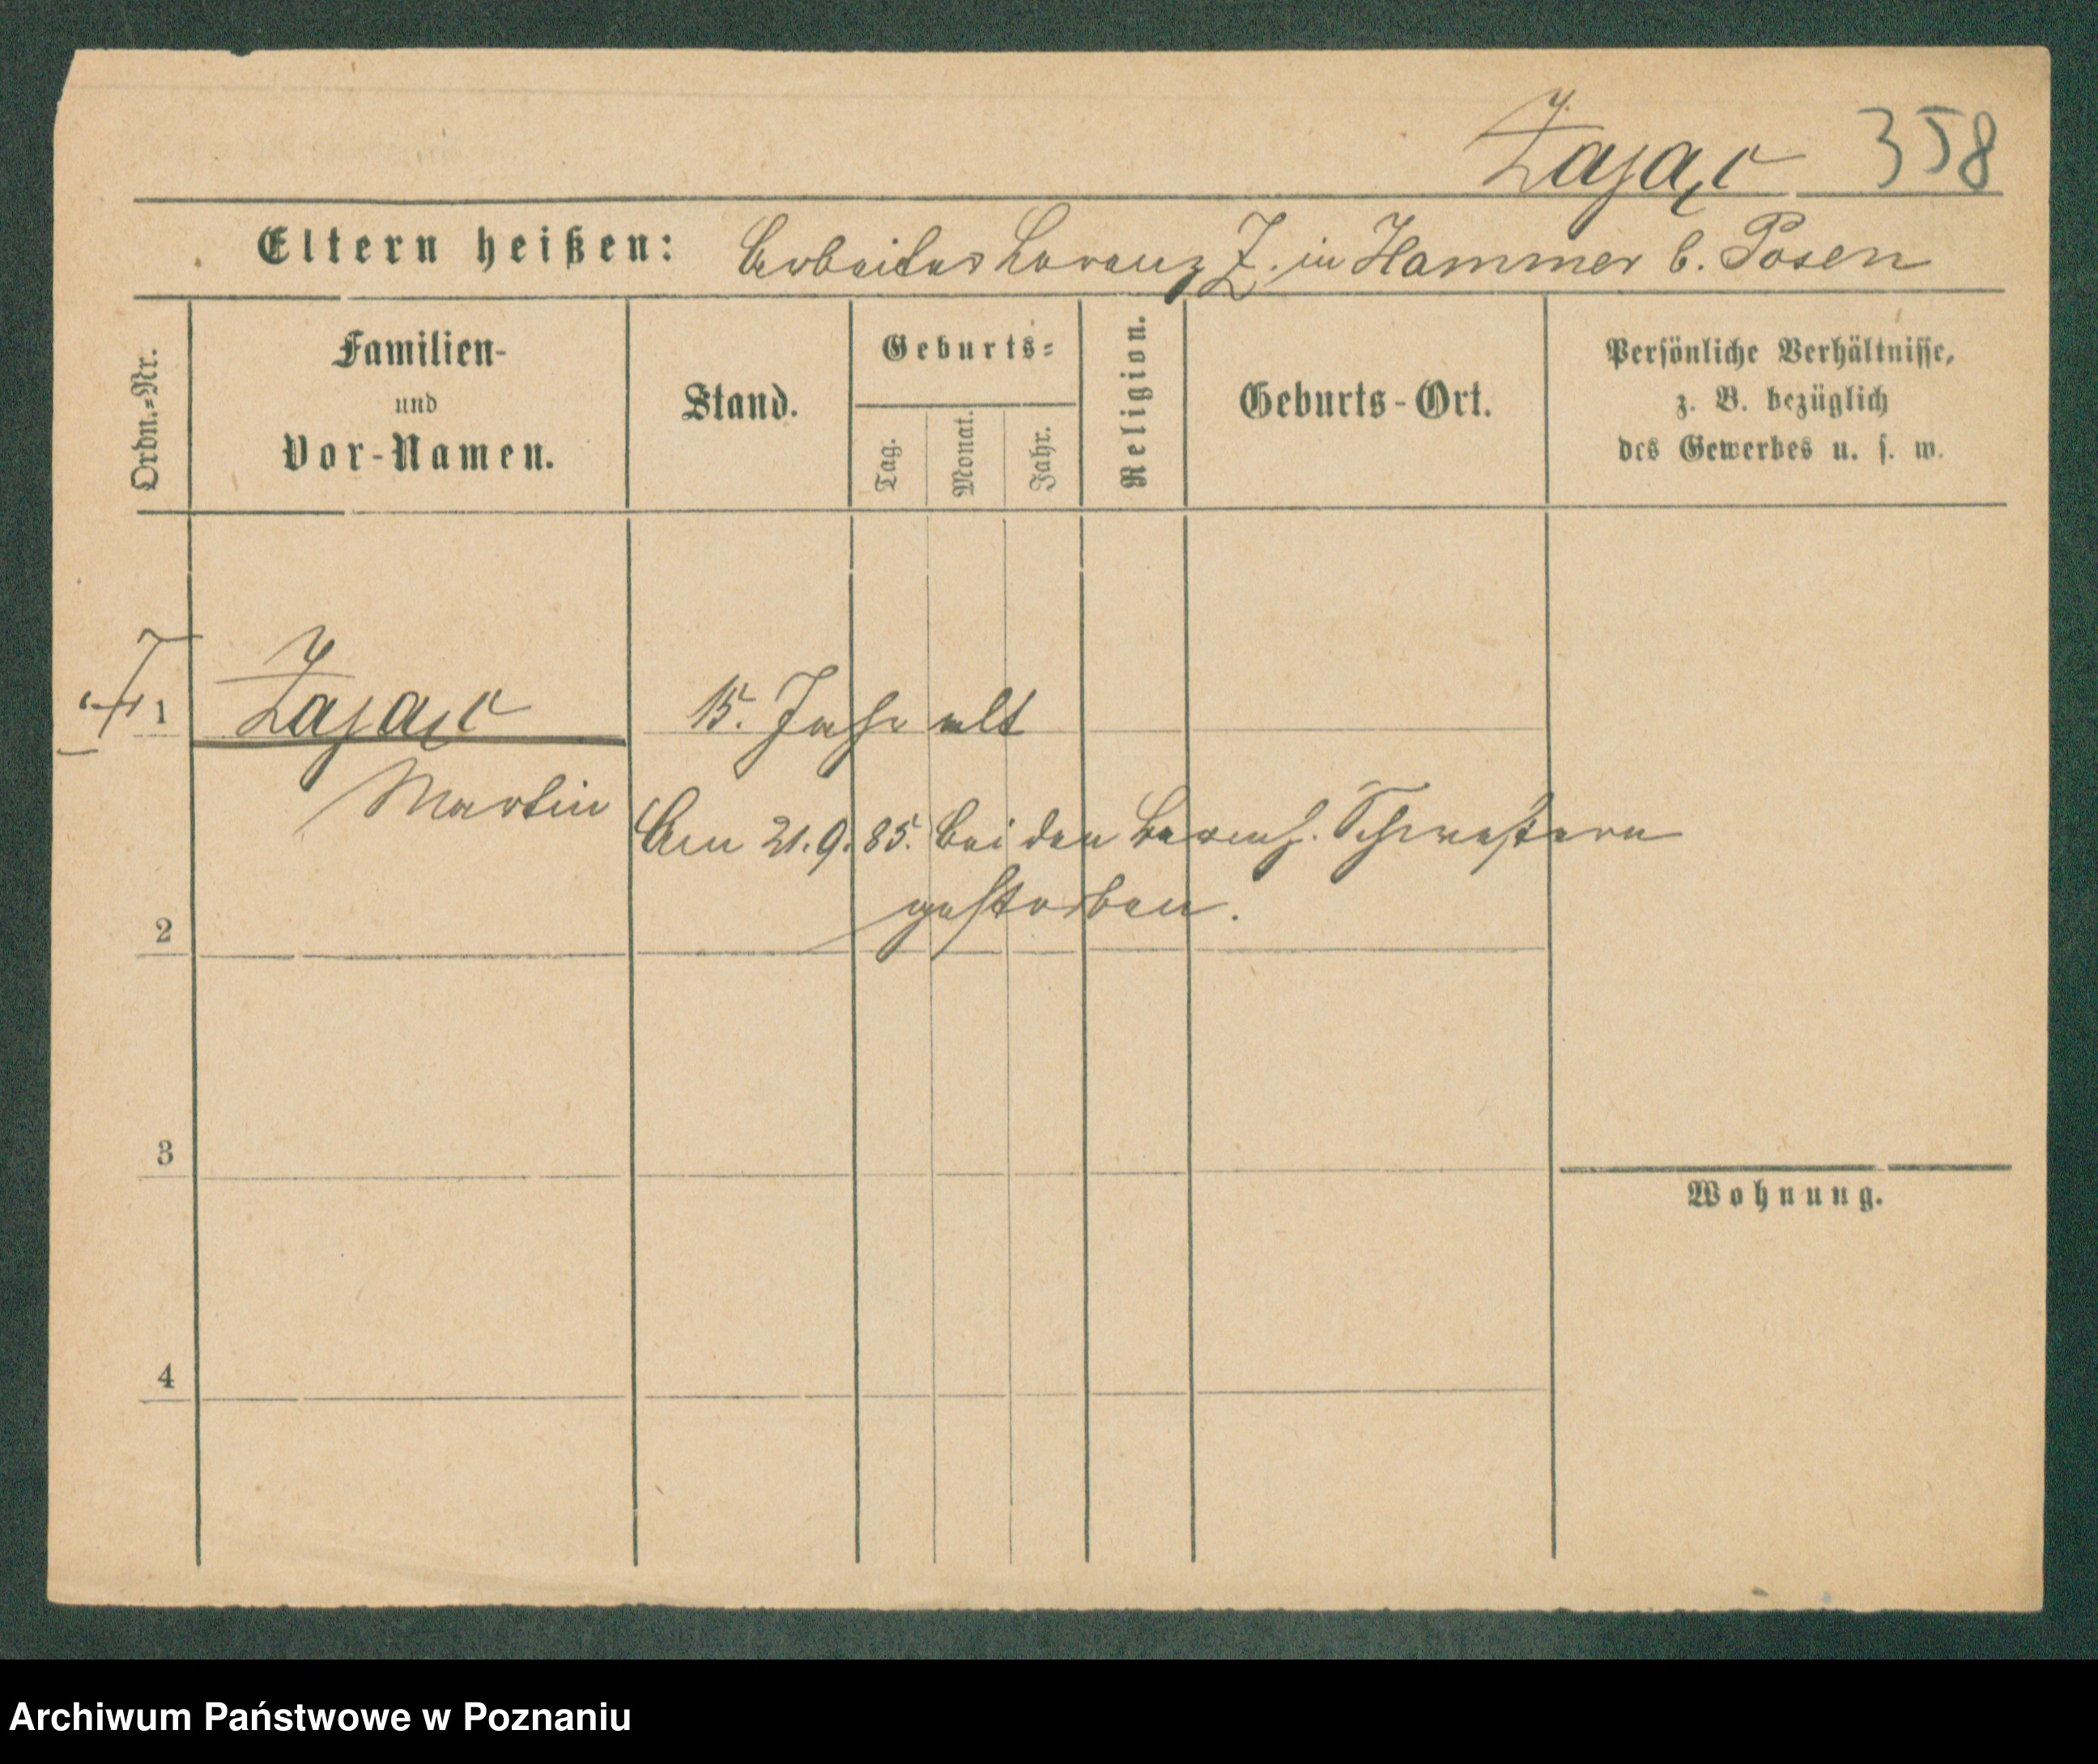 Zając 358
Eltern heißen: Arbeiter Lorenz Z. in Hammer b. Posen
Ordn.=Nr.
Familien-
und
Vor-Namen.
Stand.
Geburts=
Tag.
Monat.
Jahr.
Religion.
Geburts-Ort.
Persönliche Verhältnisse,
z. B. bezüglich
des Gewerbes u. s. w.
1 Zając 15. Jahr alt
Martin
Am 21.9.85. bei den barmh. Schwestern
gestorben.
2
3
Wohnung.
4
Archiwum Państwowe w Poznaniu